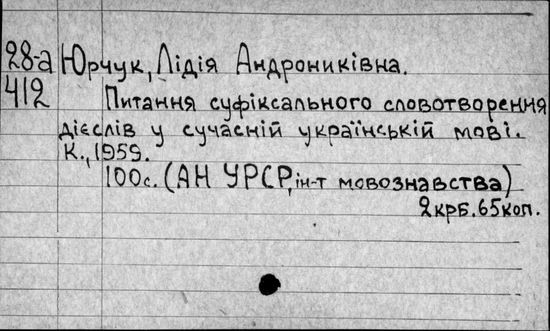 28-а Юрчук, Лідія Андрониківна.
412 Питання суфіксального словотворення
дієслів у сучасній українській мові.
К., 1959.
100с. (АН УРСР, ін-т мовознавства)
2крб. 65коп.